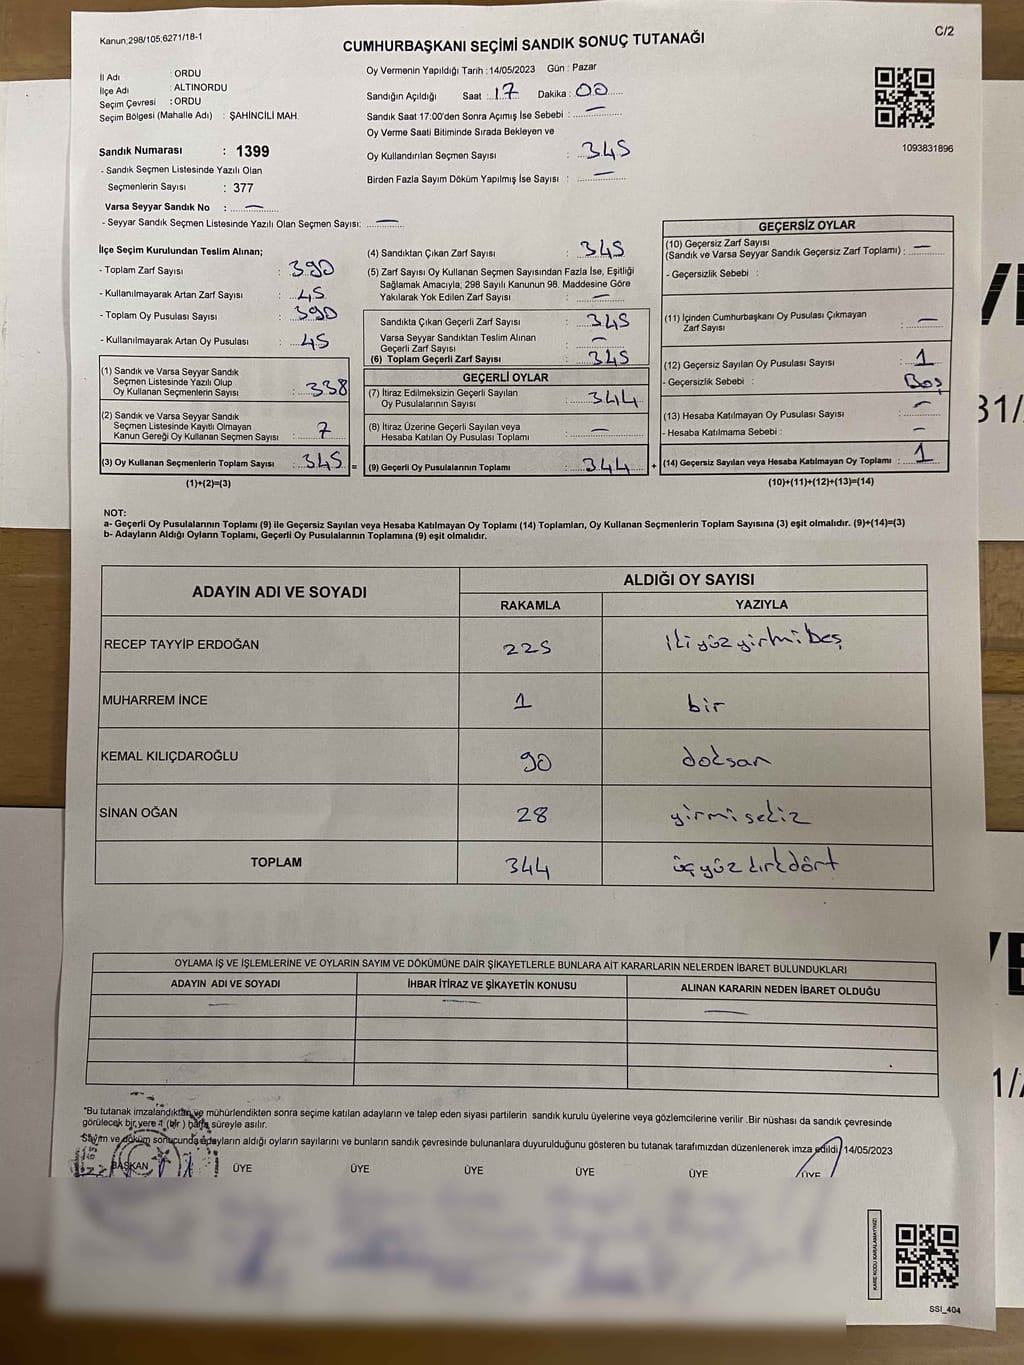 Kanun;298/105,6271/18-1
C/2
CUMHURBAŞKANI SEÇİMİ SANDIK SONUÇ TUTANAĞI
İl Adı : ORDU
İlçe Adı : ALTINORDU
Seçim Çevresi : ORDU
Seçim Bölgesi (Mahalle Adı) : ŞAHİNCİLİ MAH.
Oy Vermenin Yapıldığı Tarih : 14/05/2023 Gün : Pazar
Sandığın Açıldığı Saat : 17 Dakika : 00
Sandık Saat 17:00'den Sonra Açımış İse Sebebi : —
Oy Verme Saati Bitiminde Sırada Bekleyen ve
Oy Kullandırılan Seçmen Sayısı : 345
Birden Fazla Sayım Döküm Yapılmış İse Sayısı : —
1093831896
Sandık Numarası : 1399
- Sandık Seçmen Listesinde Yazılı Olan
Seçmenlerin Sayısı : 377
Varsa Seyyar Sandık No : —
- Seyyar Sandık Seçmen Listesinde Yazılı Olan Seçmen Sayısı: —
İlçe Seçim Kurulundan Teslim Alınan;
- Toplam Zarf Sayısı : 390
- Kullanılmayarak Artan Zarf Sayısı : 45
- Toplam Oy Pusulası Sayısı : 390
- Kullanılmayarak Artan Oy Pusulası : 45
(1) Sandık ve Varsa Seyyar Sandık
Seçmen Listesinde Yazılı Olup
Oy Kullanan Seçmenlerin Sayısı : 338
(2) Sandık ve Varsa Seyyar Sandık
Seçmen Listesinde Kayıtlı Olmayan
Kanun Gereği Oy Kullanan Seçmen Sayısı : 7
(3) Oy Kullanan Seçmenlerin Toplam Sayısı : 345 =
(1)+(2)=(3)
(4) Sandıktan Çıkan Zarf Sayısı : 345
(5) Zarf Sayısı Oy Kullanan Seçmen Sayısından Fazla İse, Eşitliği
Sağlamak Amacıyla, 298 Sayılı Kanunun 98. Maddesine Göre
Yakılarak Yok Edilen Zarf Sayısı : —
Sandıkta Çıkan Geçerli Zarf Sayısı : 345
Varsa Seyyar Sandıktan Teslim Alınan
Geçerli Zarf Sayısı : —
(6) Toplam Geçerli Zarf Sayısı : 345
GEÇERLİ OYLAR
(7) İtiraz Edilmeksizin Geçerli Sayılan
Oy Pusulalarının Sayısı : 344
(8) İtiraz Üzerine Geçerli Sayılan veya
Hesaba Katılan Oy Pusulası Toplamı : —
(9) Geçerli Oy Pusulalarının Toplamı : 344 +
GEÇERSİZ OYLAR
(10) Geçersiz Zarf Sayısı
(Sandık ve Varsa Seyyar Sandık Geçersiz Zarf Toplamı) : —
- Geçersizlik Sebebi :
(11) İçinden Cumhurbaşkanı Oy Pusulası Çıkmayan
Zarf Sayısı : —
(12) Geçersiz Sayılan Oy Pusulası Sayısı : 1
- Geçersizlik Sebebi : Boş
(13) Hesaba Katılmayan Oy Pusulası Sayısı : —
- Hesaba Katılmama Sebebi : —
(14) Geçersiz Sayılan veya Hesaba Katılmayan Oy Toplamı : 1
(10)+(11)+(12)+(13)=(14)
NOT:
a- Geçerli Oy Pusulalarının Toplamı (9) ile Geçersiz Sayılan veya Hesaba Katılmayan Oy Toplamı (14) Toplamları, Oy Kullanan Seçmenlerin Toplam Sayısına (3) eşit olmalıdır. (9)+(14)=(3)
b- Adayların Aldığı Oyların Toplamı, Geçerli Oy Pusulalarının Toplamına (9) eşit olmalıdır.
ADAYIN ADI VE SOYADI ALDIĞI OY SAYISI
RAKAMLA YAZIYLA
RECEP TAYYİP ERDOĞAN 225 ikiyüzyirmibeş
MUHARREM İNCE 1 bir
KEMAL KILIÇDAROĞLU 90 doksan
SİNAN OĞAN 28 yirmisekiz
TOPLAM 344 üçyüzkırkdört
OYLAMA İŞ VE İŞLEMLERİNE VE OYLARIN SAYIM VE DÖKÜMÜNE DAİR ŞİKAYETLERLE BUNLARA AİT KARARLARIN NELERDEN İBARET BULUNDUKLARI
ADAYIN ADI VE SOYADI İHBAR İTİRAZ VE ŞİKAYETİN KONUSU ALINAN KARARIN NEDEN İBARET OLDUĞU
— — —
*Bu tutanak imzalandıktan ve mühürlendikten sonra seçime katılan adayların ve talep eden siyasi partilerin sandık kurulu üyelerine veya gözlemcilerine verilir .Bir nüshası da sandık çevresinde
görülecek bir yere 1 (bir ) hafta süreyle asılır.
Sayım ve döküm sonucunda adayların aldığı oyların sayılarını ve bunların sandık çevresinde bulunanlara duyurulduğunu gösteren bu tutanak tarafımızdan düzenlenerek imza edildi. 14/05/2023
BAŞKAN ÜYE ÜYE ÜYE ÜYE ÜYE ÜYE
KARE KODU KARALAMAYINIZ!
SSI_404
31/
1/